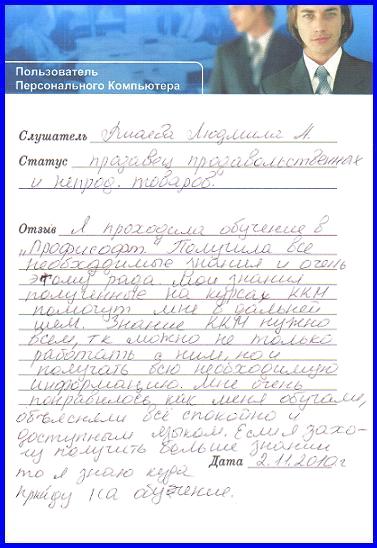 Пользователь
Персонального Компьютера
Слушатель Людмила А
Статус продавец продавольственных
и непрод. товаров."
Отзыв Я проходила обучение в
"Профисофт." Получила все
необходимые знания и очень
этому рада. Мои знания
полученные на курсах ККМ
помогут мне в дальней
шем. Знание ККМ нужно
всем, т.к можно не только
работать с ним, но и
получать всю необходимую
информацию. Мне очень
понравилось, как меня обучали,
объясняли всё спокойно и
доступным языком. Если я захо-
чу получить больше знаний
Дата 2.11.2010г
то я знаю куда
приду на обучение.